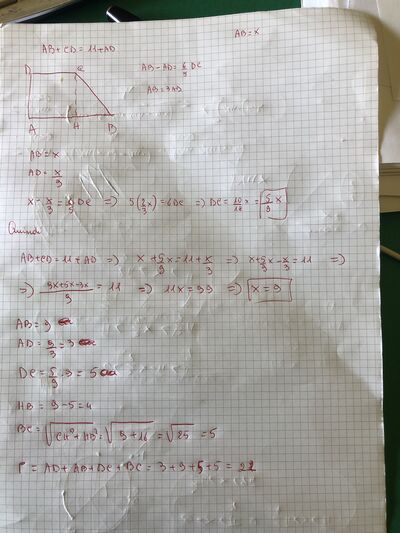 AB = x
AB + CD = 11 + AD
AB - AD = 6/5 DC
AB = 3AD
D C
A H B
AB = x
AD = x/3
x - x/3 = 6/5 DC => 5(2/3 x) = 6DC => DC = 10/18 x = 5/9 x
Quindi
AB + CD = 11 + AD => x + 5/9 x = 11 + x/3 => x + 5/9 x - x/3 = 11 =>
=> (9x + 5x - 3x)/9 = 11 => 11x = 99 => x = 9
AB = 9
AD = 9/3 = 3
DC = 5/9 · 9 = 5
HB = 9 - 5 = 4
BC = √(CH² + HB²) = √(9 + 16) = √25 = 5
P = AD + AB + DC + BC = 3 + 9 + 5 + 5 = 22